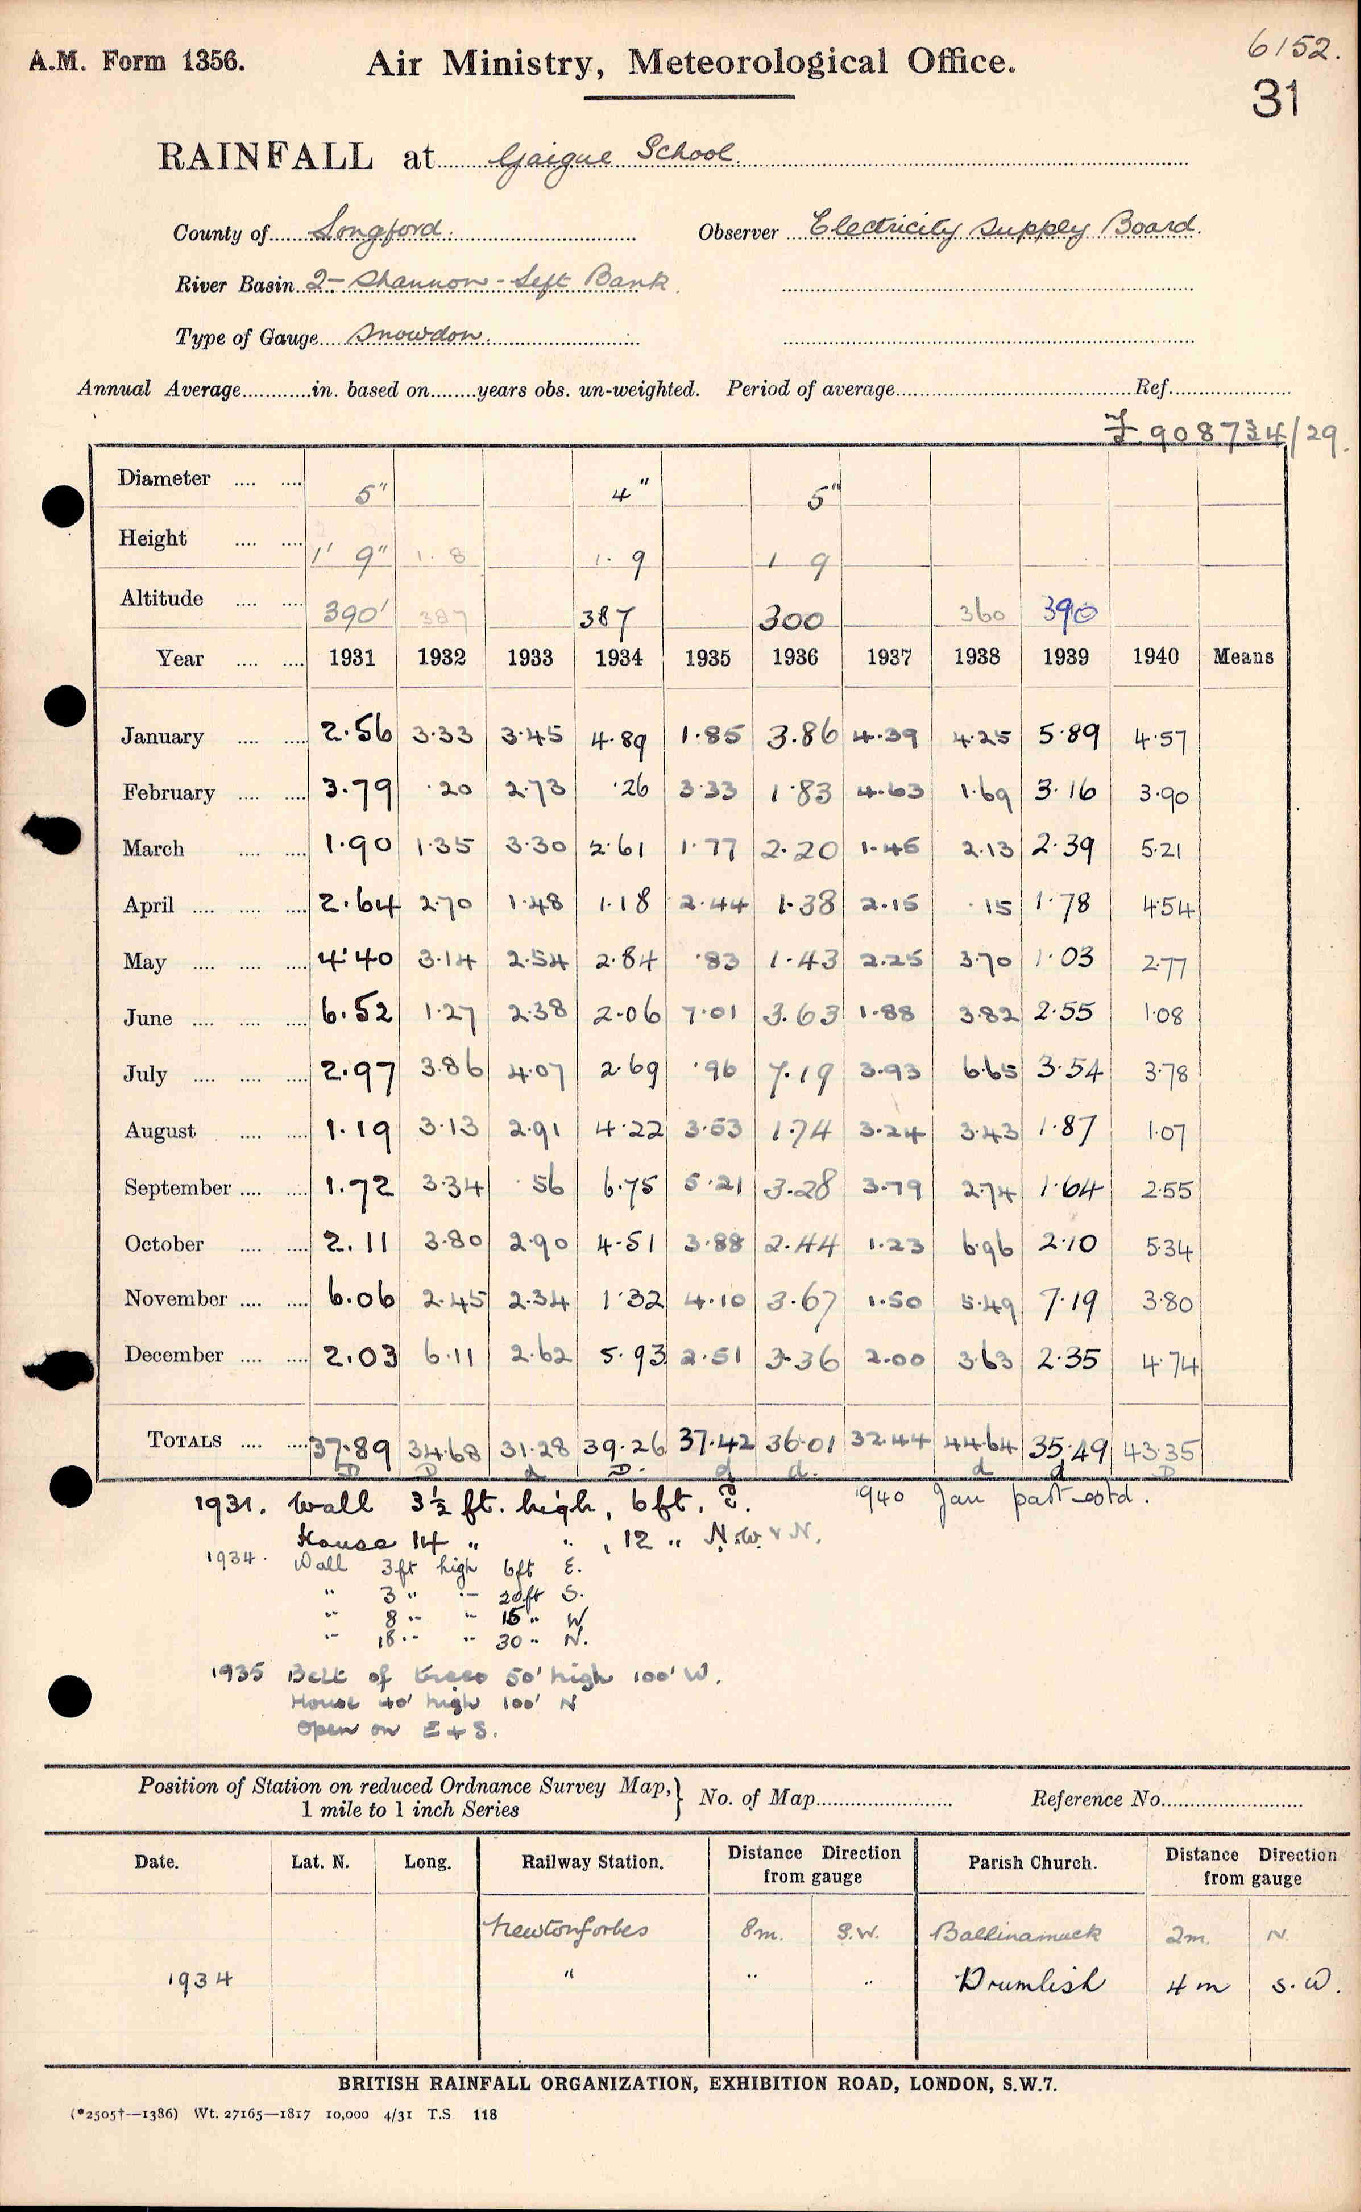 A.M. Form 1356. Air Ministry, Meteorological Office. 6152.
31
RAINFALL at Gaigue School.
County of Longford. Observer Electricity Supply Board.
River Basin 2 - Shannon - Left Bank.
Type of Gauge Snowdon.
Annual Average............in. based on........years obs. un-weighted. Period of average........................Ref.....................
908734/29.
Diameter .... .... 5" 4" 5"
Height .... .... 1' 9" 1. 8 1. 9 1 9
Altitude .... .... 390' 387 387 300 360 390
Year .... .... 1931 1932 1933 1934 1935 1936 1937 1938 1939 1940 Means
January .... .... 2.56 3.33 3.45 4.89 1.85 3.86 4.39 4.25 5.89 4.57
February .... .... 3.79 .20 2.73 .26 3.33 1.83 4.63 1.69 3.16 3.90
March .... .... 1.90 1.35 3.30 2.61 1.77 2.20 1.45 2.13 2.39 5.21
April .... .... .... 2.64 2.70 1.48 1.18 2.44 1.38 2.15 .15 1.78 4.54
May .... .... .... 4.40 3.14 2.54 2.84 .83 1.43 2.25 3.70 1.03 2.77
June .... .... .... 6.52 1.27 2.38 2.06 7.01 3.63 1.88 3.82 2.55 1.08
July .... .... .... 2.97 3.86 4.07 2.69 .96 7.19 3.93 6.65 3.54 3.78
August .... .... 1.19 3.13 2.91 4.22 3.53 1.74 3.24 3.43 1.87 1.07
September .... .... 1.72 3.34 .56 6.75 5.21 3.28 3.79 2.74 1.64 2.55
October .... .... 2.11 3.80 2.90 4.51 3.88 2.44 1.23 6.96 2.10 5.34
November .... .... 6.06 2.45 2.34 1.32 4.10 3.67 1.50 5.49 7.19 3.80
December .... .... 2.03 6.11 2.62 5.93 2.51 3.36 2.00 3.63 2.35 4.74
TOTALS .... .... 37.89 34.68 31.28 39.26 37.42 36.01 32.44 44.64 35.49 43.35
D D d D. d d. d d D
1931. Wall 3½ ft. high, 6ft. 1940 Jan part estd.
House 14 " " , 12 " N.W. & N.
1934. Wall 3ft high 6ft E.
" 3 " " 20ft S.
" 8 " " 15 " W
" 18 " " 30 " N.
1935 Belt of trees 50' high 100' W.
House 40' high 100' N
Open on E & S.
Position of Station on reduced Ordnance Survey Map, } No. of Map........................ Reference No.........................
1 mile to 1 inch Series
Date. Lat. N. Long. Railway Station. Distance Direction from gauge Parish Church. Distance Direction from gauge
Newtonforbes 8m. S.W. Ballinamuck 2m. N.
1934 " " " Drumlish 4 m S.W.
BRITISH RAINFALL ORGANIZATION, EXHIBITION ROAD, LONDON, S.W.7.
(*2505†—1386) Wt. 27165—1817 10,000 4/31 T.S 118